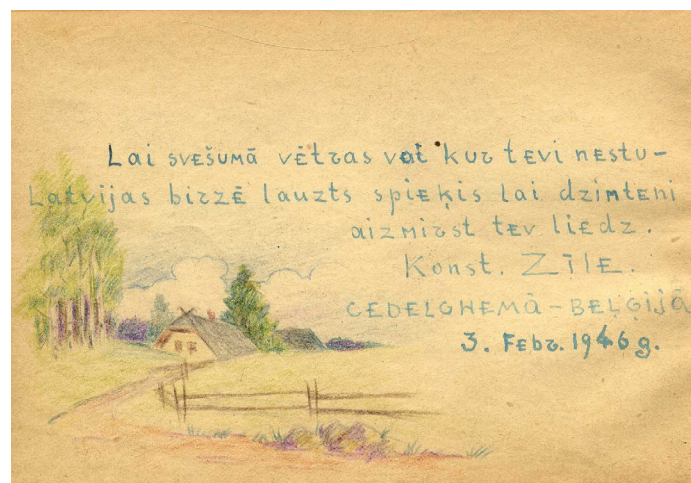 Lai svešumā vētras vai kur tevi nestu-
Latvijas birzē lauzts spieķis lai dzimteni
aizmirst tev liedz.
Konst. ZĪlE.
CEDELGHEMĀ-BEĻĢIJĀ
3. Febr. 1946g.